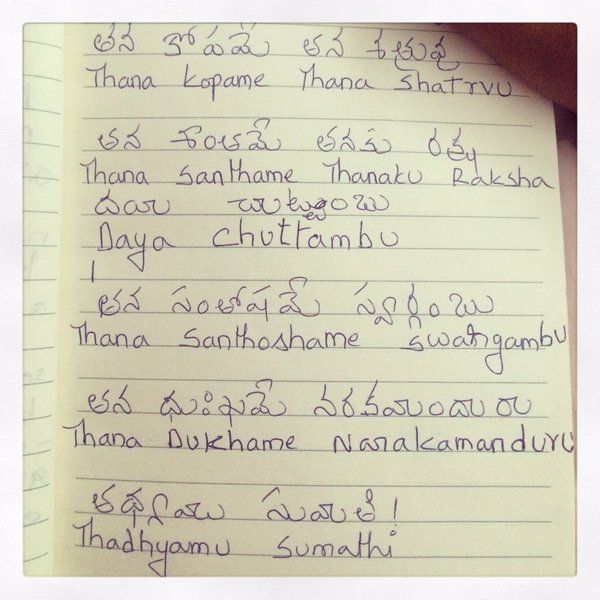 తన కోపమే తన శత్రువు
Thana Kopame Thana Shatrvu
తన శాంతమే తనకు రక్ష
Thana Santhame Thanaku Raksha
దయ చుట్టంబు
Daya Chuttambu
తన సంతోషమే స్వర్గంబు
Thana Santhoshame Swargambu
తన ధుఃఖమే నరకమందురు
Thana Dukhame Narakamanduru
సుమతి!
Thadhyamu Sumathi